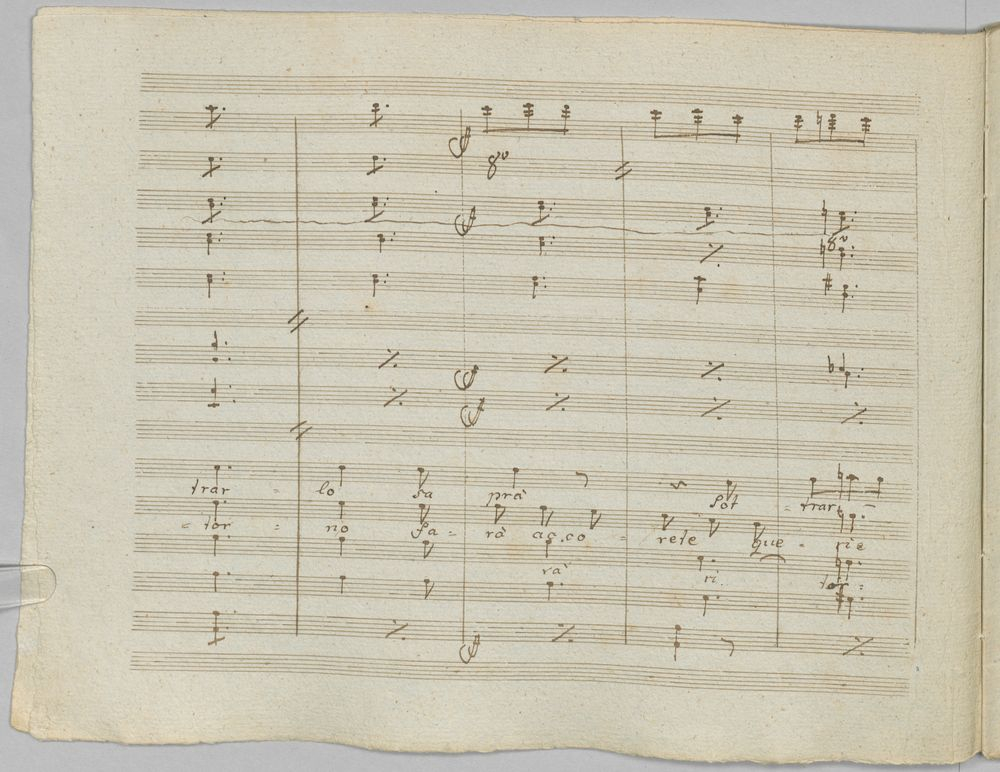 8va
8va
trar - lo sa prà sot - trar -
- tor - no sa - rà ac.co - rete que - rie
rà ri tor -